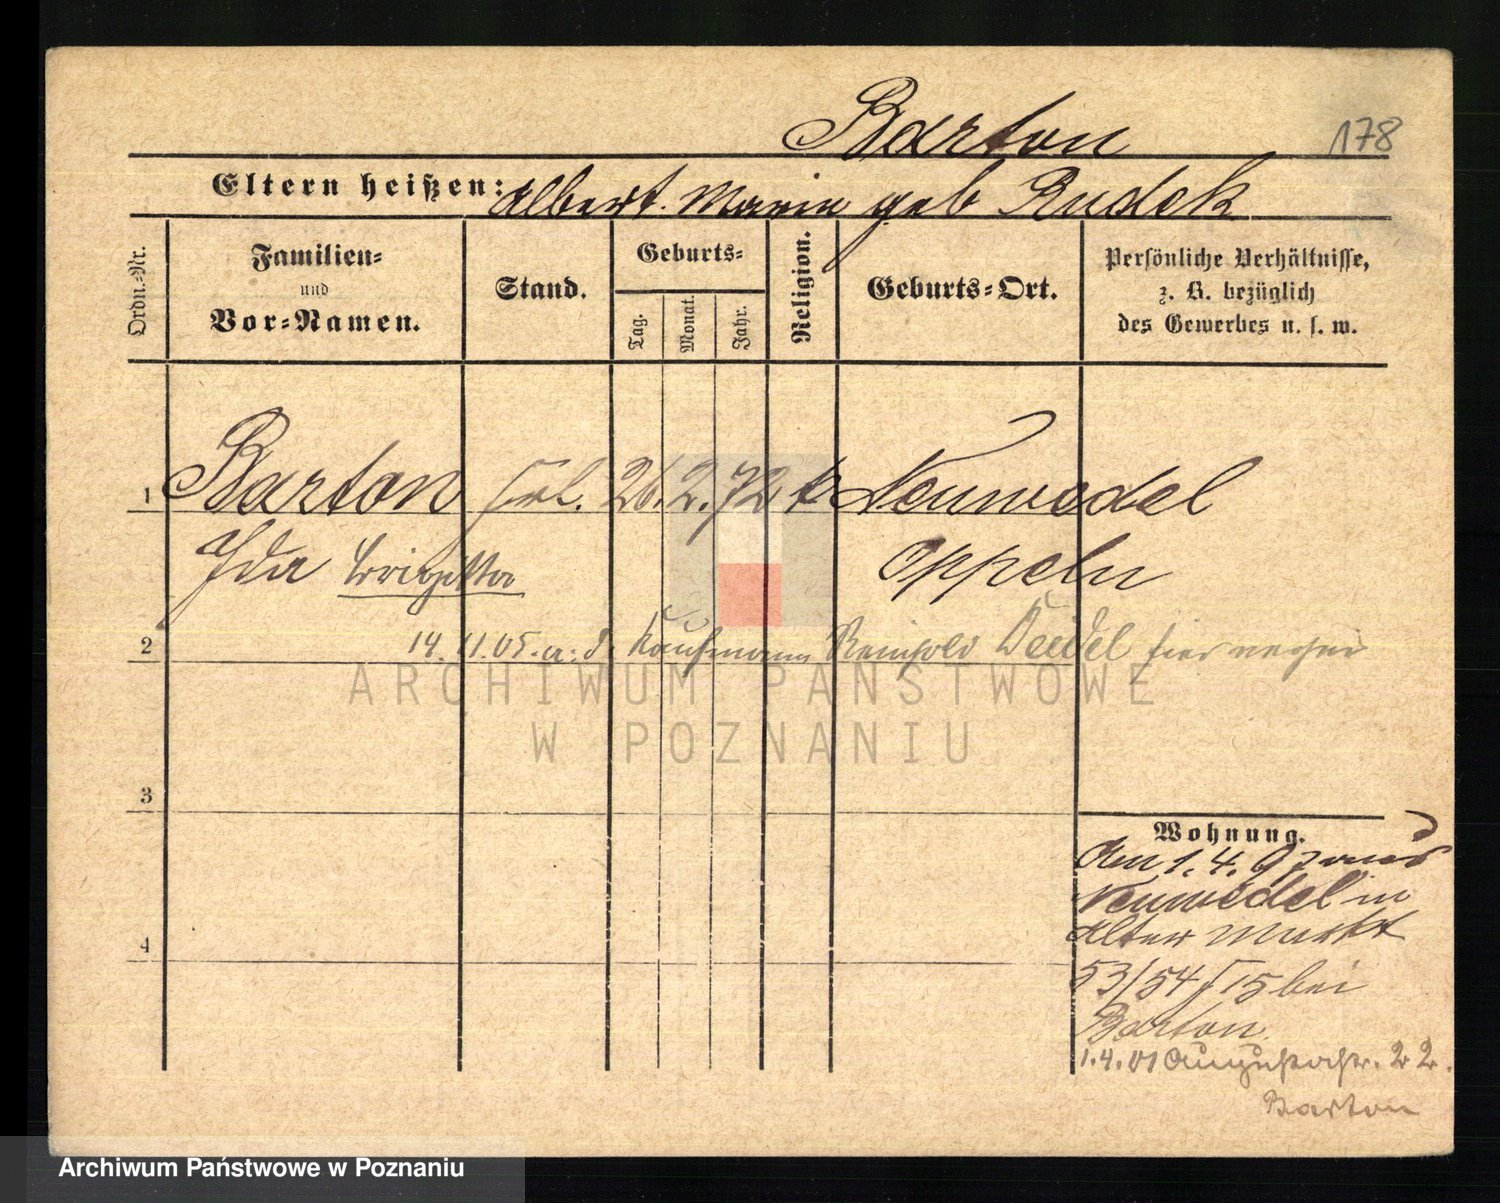 Barton
178
Eltern heißen: Albert. Maria geb Rudek
Ordn.-Nr.
Familien-
und
Vor-Namen.
Stand.
Geburts-
Tag.
Monat.
Jahr.
Religion.
Geburts-Ort.
Persönliche Verhältnisse,
z. B. bezüglich
des Gewerbes u. s. w.
1 Barton Frl. 26. 2. 72 k Neuwedel
Ida Brigitta Oppeln
2 14. 11. 05. a. d. Kaufmann Reinhold Seidel hier
ARCHIWUM PAŃSTWOWE
W POZNANIU
3
Wohnung.
den 1. 4. 97 aus
Neuwedel in
Alter Markt
4
53/54 bei
Barton.
1. 4. 01 Augustastr. 22.
Barton
Archiwum Państwowe w Poznaniu